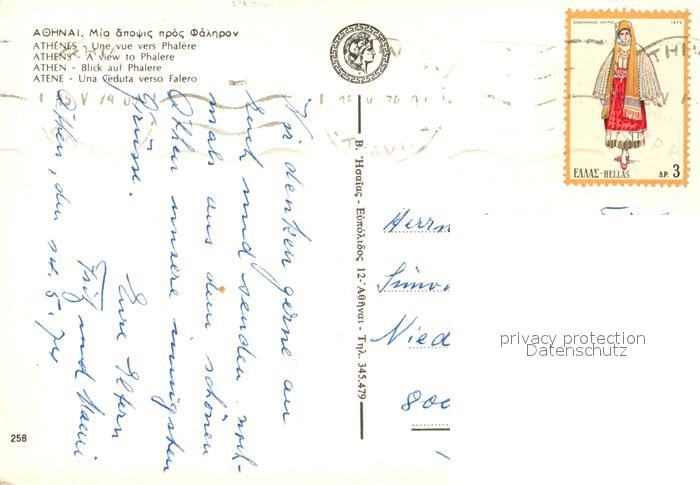 ΑΘΗΝΑΙ. Μία ἄποψις πρὸς Φάληρον
ATHÈNES - Une vue vers Phalère
ATHENS - A view to Phalere
ATHEN - Blick auf Phalere
ATENE - Una veduta verso Falero
1972
ΕΛΛΑΣ-HELLAS
ΔΡ. 3
Wir denken gerne an
Euch und senden noch-
mals aus dem schönen
Athen unsere innigsten
Grüsse.
Eure Eltern
Fritz und Hanni
Athen, den 5. 74
Β. Ἠσαΐας - Εὐπόλιδος 12 - Ἀθῆναι - Τηλ. 345.479
Herrn
Simo
Nied
800
privacy protection
Datenschutz
258